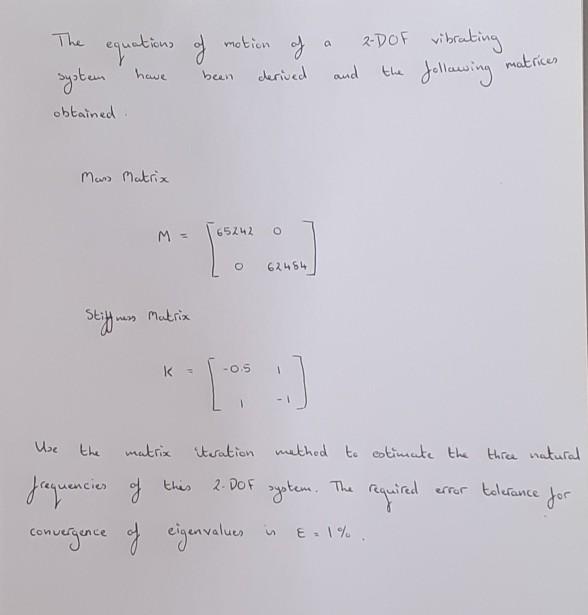 The equations of motion of a 2-DOF vibrating
system have been derived and the following matrices
obtained.
Mass Matrix
M = [65242 0
0 62484]
Stiffness Matrix
K = [-0.5 1
1 -1]
Use the matrix iteration method to estimate the three natural
frequencies of this 2-DOF system. The required error tolerance for
convergence of eigenvalues is ε = 1%.